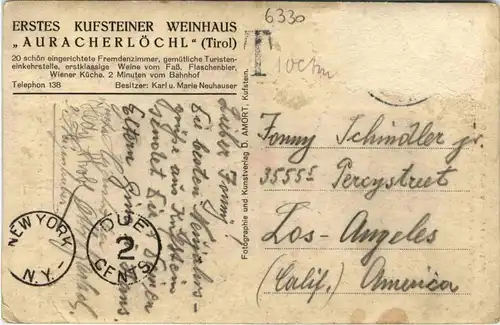 6330
ERSTES KUFSTEINER WEINHAUS
„AURACHERLÖCHL“ (Tirol)
20 schön eingerichtete Fremdenzimmer, gemütliche Turisten-
einkehrstelle, erstklassige Weine vom Faß, Flaschenbier,
Wiener Küche. 2 Minuten vom Bahnhof
Telephon 138 Besitzer: Karl u. Marie Neuhauser
T
Lieber Fonny!
Die besten Neujahrs-
grüße aus Kufstein
sendet Dir Deiner
Eltern
Fotographie und Kunstverlag D. AMORT, Kufstein.
NEW YORK
N.Y.
DUE
2
CENTS
Fonny Schindler jr.
35555
Percystreet
Los-Angeles
(Calif.) America